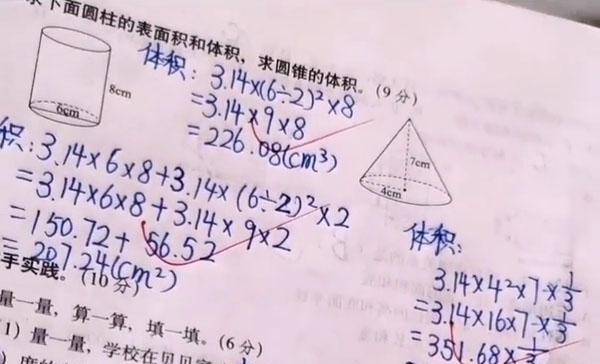 求下面圆柱的表面积和体积，求圆锥的体积。(9分)
体积：3.14×(6÷2)²×8
=3.14×9×8
=226.08(cm³)
8cm
6cm
7cm
4cm
积：3.14×6×8+3.14×(6÷2)²×2
=3.14×6×8+3.14×9×2
=150.72+56.52
=207.24(cm²)
体积：
3.14×4²×7×1/3
=3.14×16×7×1/3
=351.68×1/3
手实践。(10分)
量一量，算一算，填一填。(6分)
1)量一量，学校在贝贝